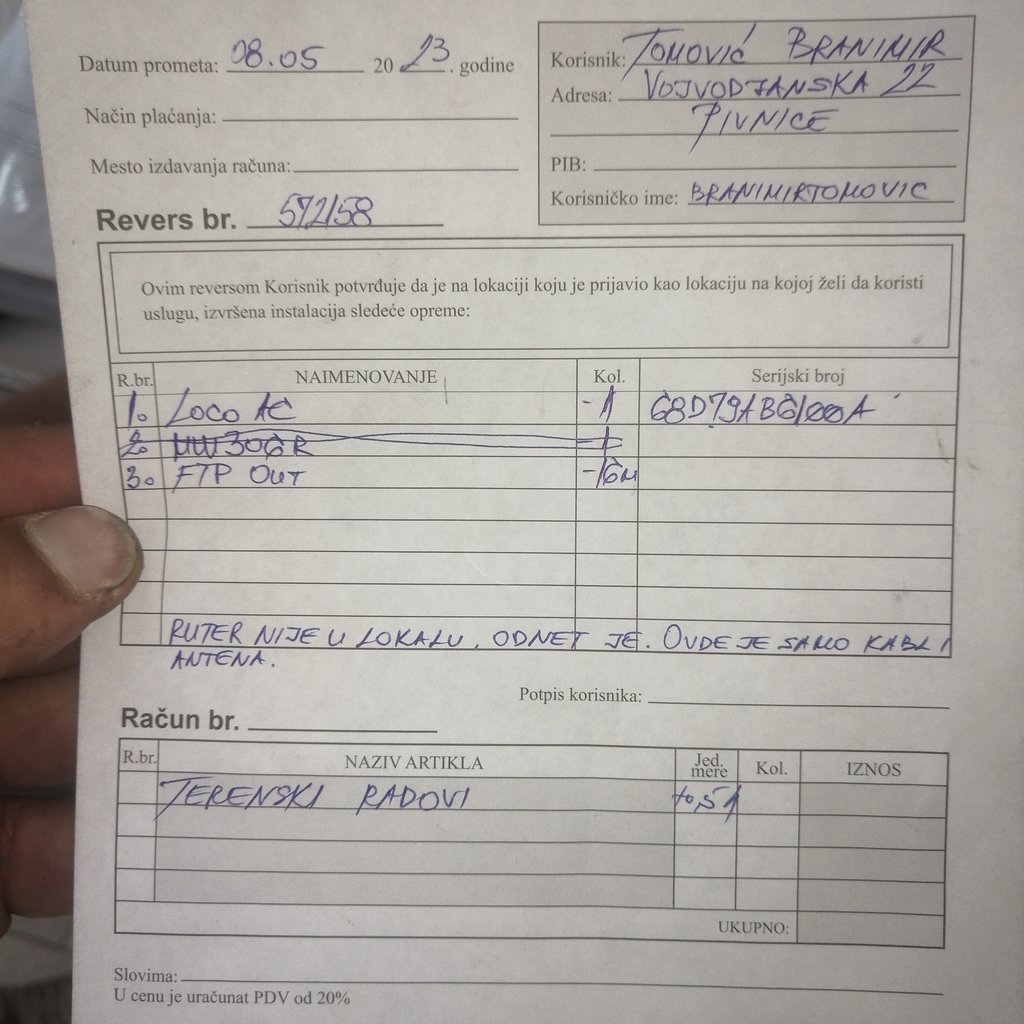 Datum prometa: 08.05 2023. godine
Način plaćanja:
Mesto izdavanja računa:
Revers br. 572/58
Korisnik: TOMOVIĆ BRANIMIR
Adresa: VOJVODJANSKA 22
PIVNICE
PIB:
Korisničko ime: BRANIMIRTOMOVIC
Ovim reversom Korisnik potvrđuje da je na lokaciji koju je prijavio kao lokaciju na kojoj želi da koristi
uslugu, izvršena instalacija sledeće opreme:
R.br. NAIMENOVANJE Kol. Serijski broj
1. LOCO AC -1 68D79AB6100A
2. MW306R 1
3. FTP OUT -16M
RUTER NIJE U LOKALU, ODNET JE. OVDE JE SAMO KABL I
ANTENA.
Potpis korisnika:
Račun br.
R.br. NAZIV ARTIKLA Jed. mere Kol. IZNOS
TERENSKI RADOVI
UKUPNO:
Slovima:
U cenu je uračunat PDV od 20%